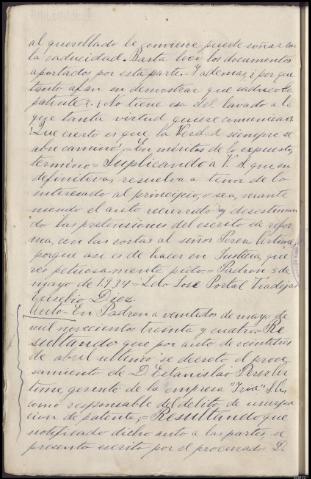 al querellado le conviene, puede soñar con
la caducidad. Basta leer los documentos
aportados por esta parte. Y ademas; ¿por que
tanto afan en demostrar que caduco la
patente?. ¿No tiene eso del lavado a la
que tanta virtud quiere comunicarse?
Que cierto es que la Verdad siempre se
abre camino".- En méritos de lo expuesto,
termino= Suplicando a V.S. que en
definitiva, resuelva a tenor de lo
interesado al principio, o sea, mante
niendo el auto recurrido y desestiman
do las pretensiones del escrito de refor
ma, con las costas al señor
porque asi es de hacer en Justicia, que
respetuosamente pido= Padron 5 de
mayo de 1934= Ldo José Portal Fradejas
Eusebio Dios
Auto= En Padron a veintidos de mayo de
mil novecientos treinta y cuatro= Re
sultando que por auto de veintitres
de abril ultimo se decreto el proce
samiento de D. Estanislao Perez
gerente de la empresa "Iroa" S.L.
como responsable del delito de usurpa
cion de patente,= Resultando que
notificado dicho auto a las partes, se
presento escrito por el procurador D.